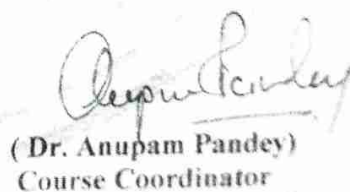 Anupam Pandey
( Dr. Anupam Pandey)
Course Coordinator